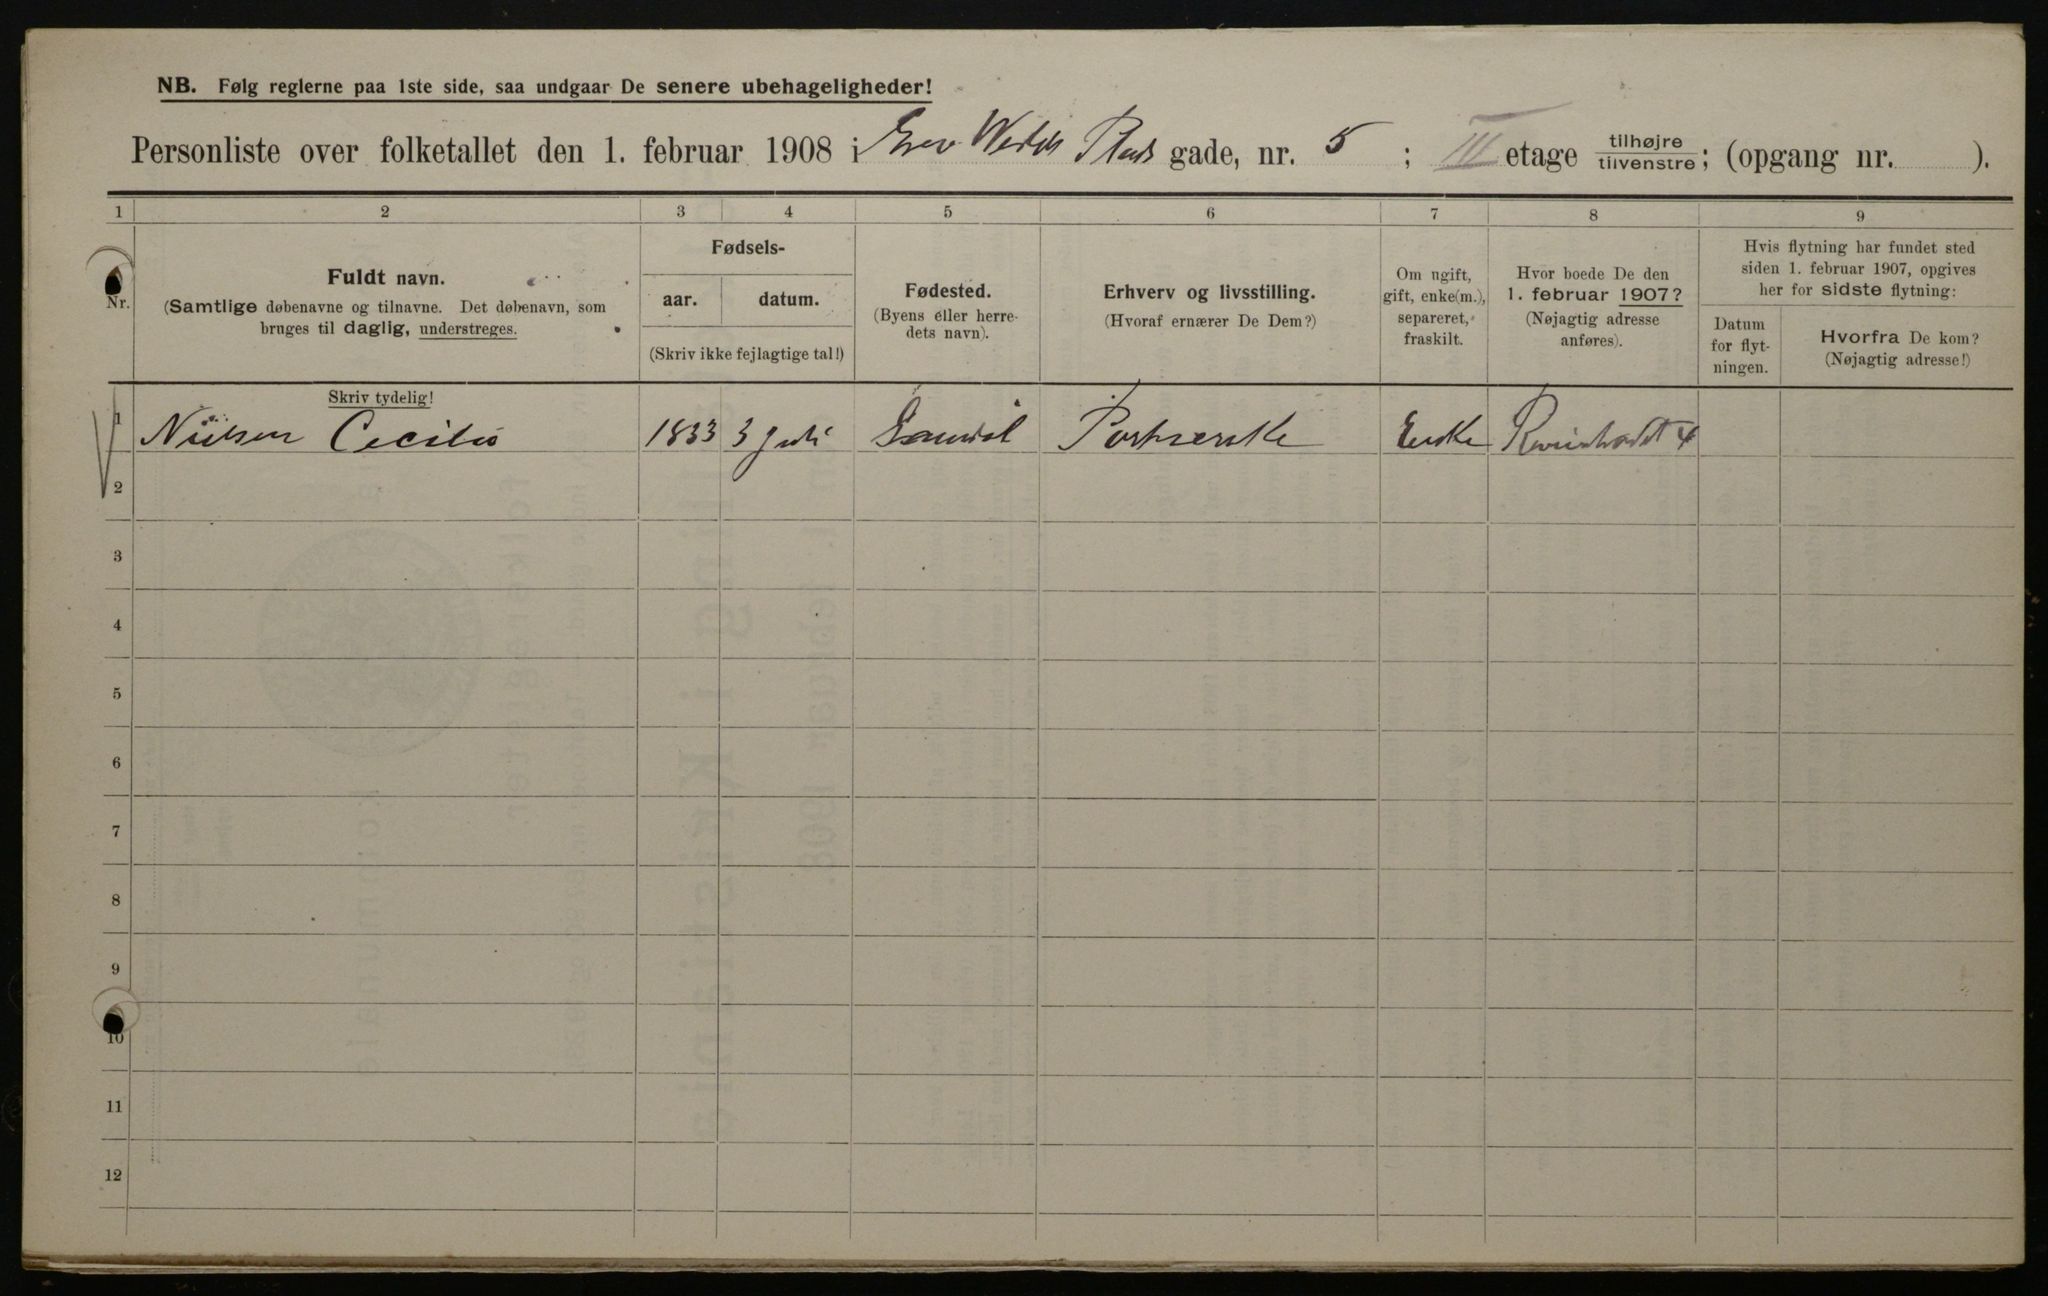 NB. Følg reglerne paa 1ste side, saa undgaar De senere ubehageligheder!
Personliste over folketallet den 1. februar 1908 i Grev Wedels Plads gade, nr. 5; III etage tilhøjre/tilvenstre; (opgang nr. ).
1 2 3 4 5 6 7 8 9
Nr.
Fuldt navn.
(Samtlige døbenavne og tilnavne. Det døbenavn, som
bruges til daglig, understreges.
Fødsels-
aar. datum.
(Skriv ikke fejlagtige tal!)
Fødested.
(Byens eller herre-
dets navn).
Erhverv og livsstilling.
(Hvoraf ernærer De Dem?)
Om ugift,
gift, enke(m.),
separeret,
fraskilt.
Hvor boede De den
1. februar 1907?
(Nøjagtig adresse
anføres).
Hvis flytning har fundet sted
siden 1. februar 1907, opgives
her for sidste flytning:
Datum
for flyt-
ningen.
Hvorfra De kom?
(Nøjagtig adresse!)
Skriv tydelig!
1 Nielsen Cecilie 1833 3 Juli Enke 4
2
3
4
5
6
7
8
9
10
11
12